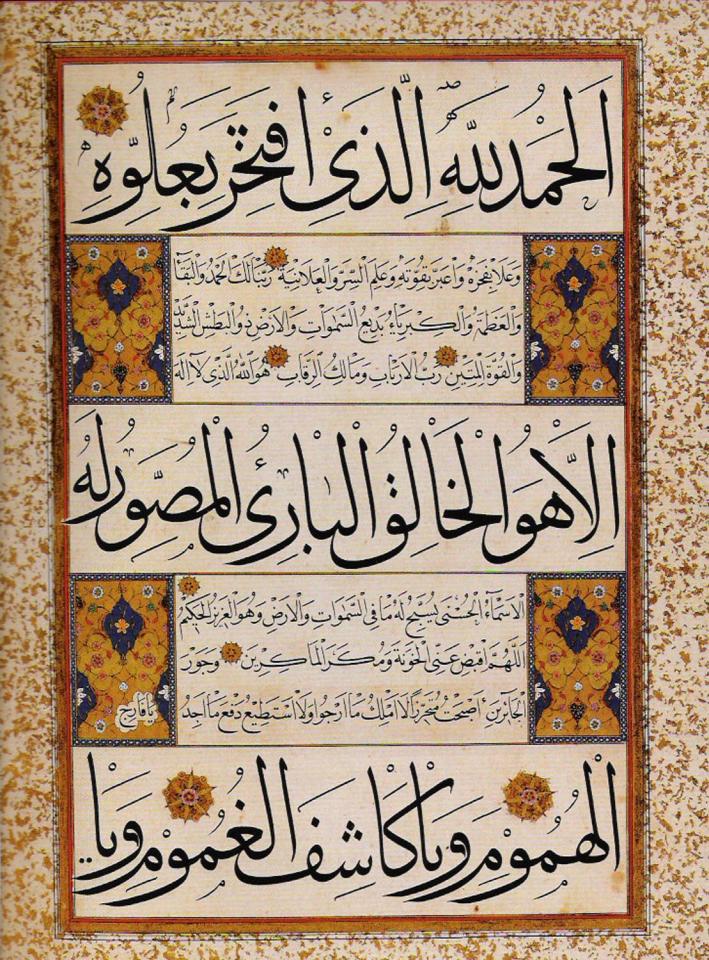 اَلحَمْدُ لِلّٰهِ الَّذِيْ افْتَخَرَ بِعُلُوِّهِ
وَعَلَا بِفَخْرِهِ وَاعْتَبَرَ بِقُوَّتِهِ وَعَلِمَ السِّرَّ وَالْعَلَانِيَةَ رَبَّنَا لَكَ الْحَمْدُ وَالْبَقَاءُ
وَالْعَظَمَةُ وَالْكِبْرِيَاءُ بَدِيعُ السَّمٰوَاتِ وَالْاَرْضِ ذُو الْبَطْشِ الشَّدِيْدِ
وَالْقُوَّةِ الْمَتِيْنِ رَبُّ الْاَرْبَابِ وَمَالِكُ الرِّقَابِ هُوَ اللّٰهُ الَّذِيْ لَا اِلٰهَ
اِلَّا هُوَ الْخَالِقُ الْبَارِئُ الْمُصَوِّرُ لَهُ
الْاَسْمَآءُ الْحُسْنٰى يُسَبِّحُ لَهُ مَا فِي السَّمٰوَاتِ وَالْاَرْضِ وَهُوَ الْعَزِيْزُ الْحَكِيْمُ
اَللّٰهُمَّ اقْبِضْ عَنِّي الْخَوَنَةَ وَمَكْرَ الْمَاكِرِيْنَ وَجَوْرَ
الْجَائِرِيْنَ اَصْبَحْتُ لَا اَمْلِكُ مَا اَرْجُوْ وَلَا اَسْتَطِيْعُ دَفْعَ مَا اَجِدُ
يا فارج
الْهُمُوْمِ وَيَا كَاشِفَ الْغُمُوْمِ وَيَا